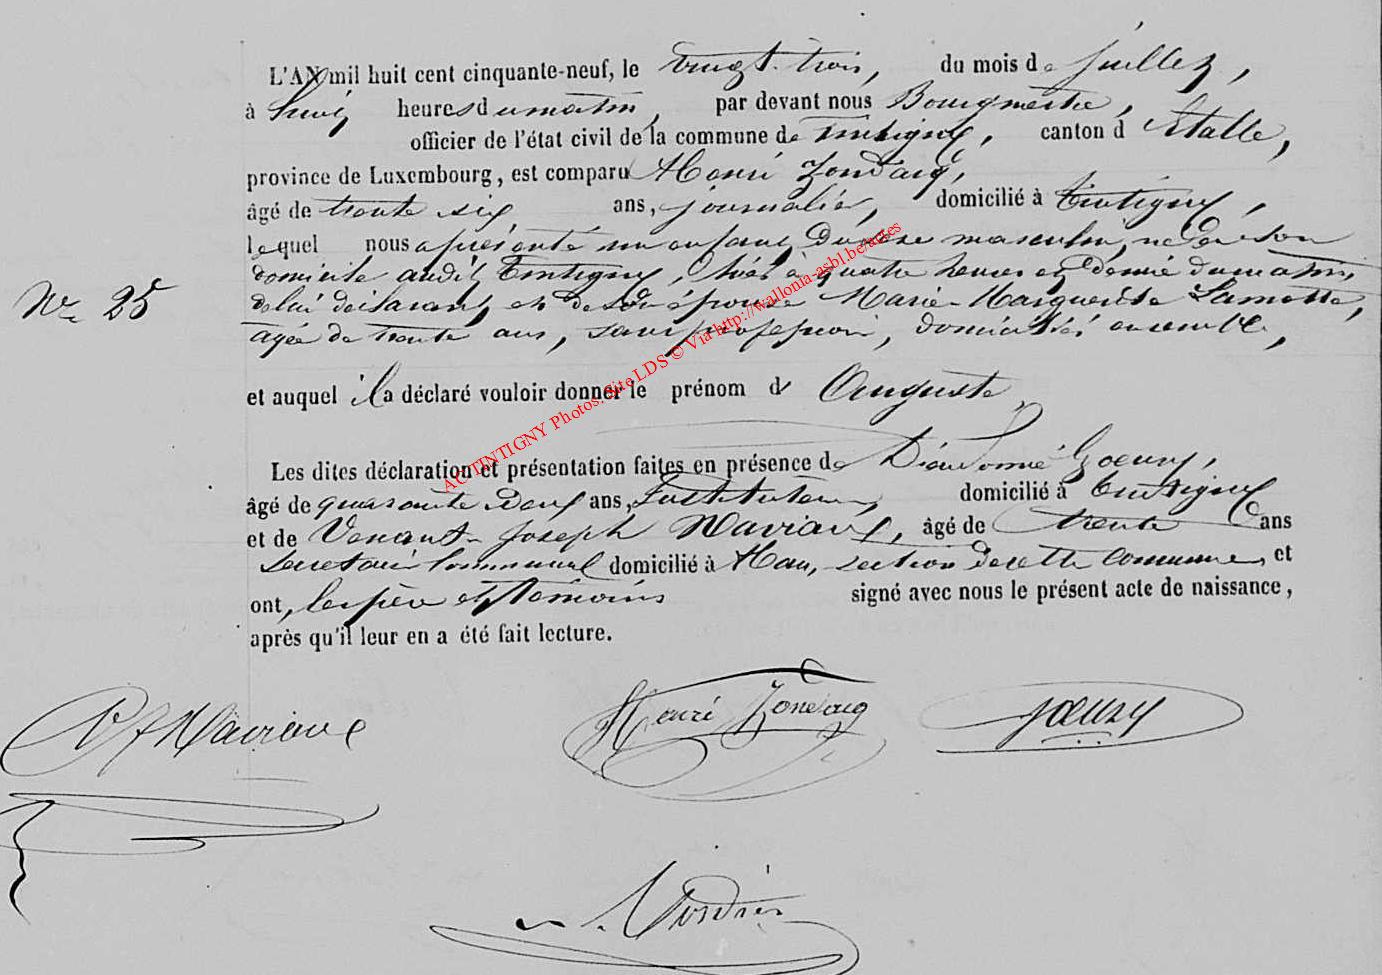 L'AN mil huit cent cinquante-neuf, le vingt-trois, du mois de juillet,
à huit heures du matin, par devant nous Bourgmestre,
officier de l'état civil de la commune de Tintigny, canton d'Etalle,
province de Luxembourg, est comparu Henri Zondacq,
âgé de trente six ans, journalier, domicilié à Tintigny,
lequel nous a présenté un enfant du sexe masculin, né en son
domicile audit Tintigny, hier à quatre heures et demie du matin,
de lui déclarant, et de son épouse Marie-Marguerite Lamotte,
agée de trente ans, sans profession, domiciliés ensemble,
N° 25
et auquel il a déclaré vouloir donner le prénom d' Auguste,
Les dites déclaration et présentation faites en présence de Dieudonné Goeury,
âgé de quarante deux ans, Instituteur, domicilié à Tintigny
et de Venant-Joseph Maviaux, âgé de trente ans
Secrétaire Communal domicilié à Han, section de cette commune, et
ont, les père et témoins signé avec nous le présent acte de naissance,
après qu'il leur en a été fait lecture.
Henri Zondacq
Goeury
ACTINTIGNY Photos: Site LDS © Via http://wallonia-asbl.be/actes